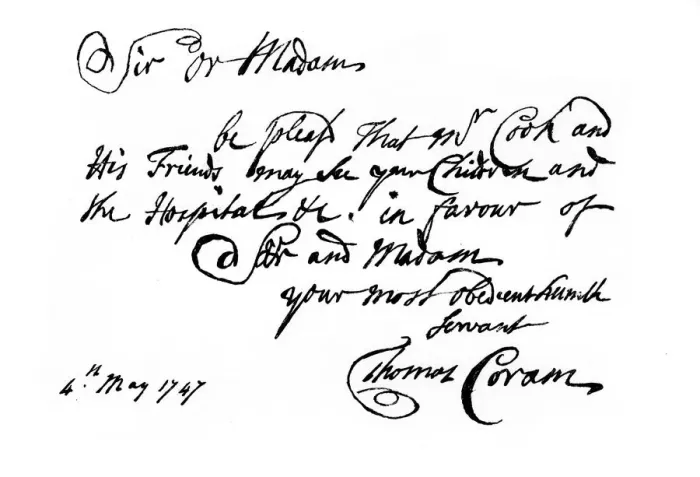 Sir Or Madam
be pleasd That Mr Cook and
His Friends may See your Children and
the Hospital &c. in favour of
Sir and Madam
your most obedient humble
Servant
Thomas Coram
4.th May 1747